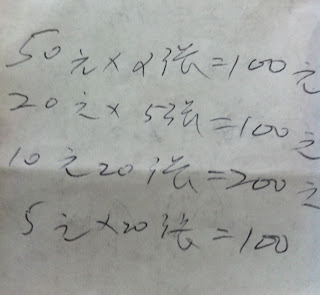 50元×2张=100元
20元×5张=100元
10元20张=200元
5元×20张=100